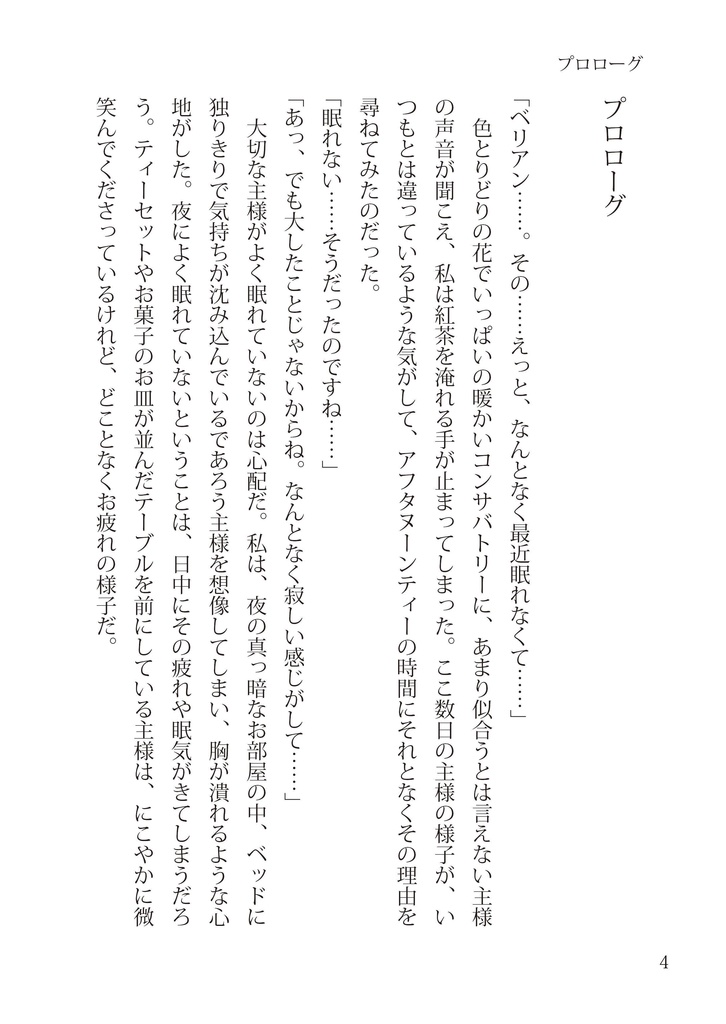 プロローグ
プロローグ
「ベリアン……。その……えっと、なんとなく最近眠れなくて……」
　色とりどりの花でいっぱいの暖かいコンサバトリーに、あまり似合うとは言えない主様
の声音が聞こえ、私は紅茶を淹れる手が止まってしまった。ここ数日の主様の様子が、い
つもとは違っているような気がして、アフタヌーンティーの時間にそれとなくその理由を
尋ねてみたのだった。
「眠れない……そうだったのですね……」
「あっ、でも大したことじゃないからね。なんとなく寂しい感じがして……」
　大切な主様がよく眠れていないのは心配だ。私は、夜の真っ暗なお部屋の中、ベッドに
独りきりで気持ちが沈み込んでいるであろう主様を想像してしまい、胸が潰れるような心
地がした。夜によく眠れていないということは、日中にその疲れや眠気がきてしまうだろ
う。ティーセットやお菓子のお皿が並んだテーブルを前にしている主様は、にこやかに微
笑んでくださっているけれど、どことなくお疲れの様子だ。
4